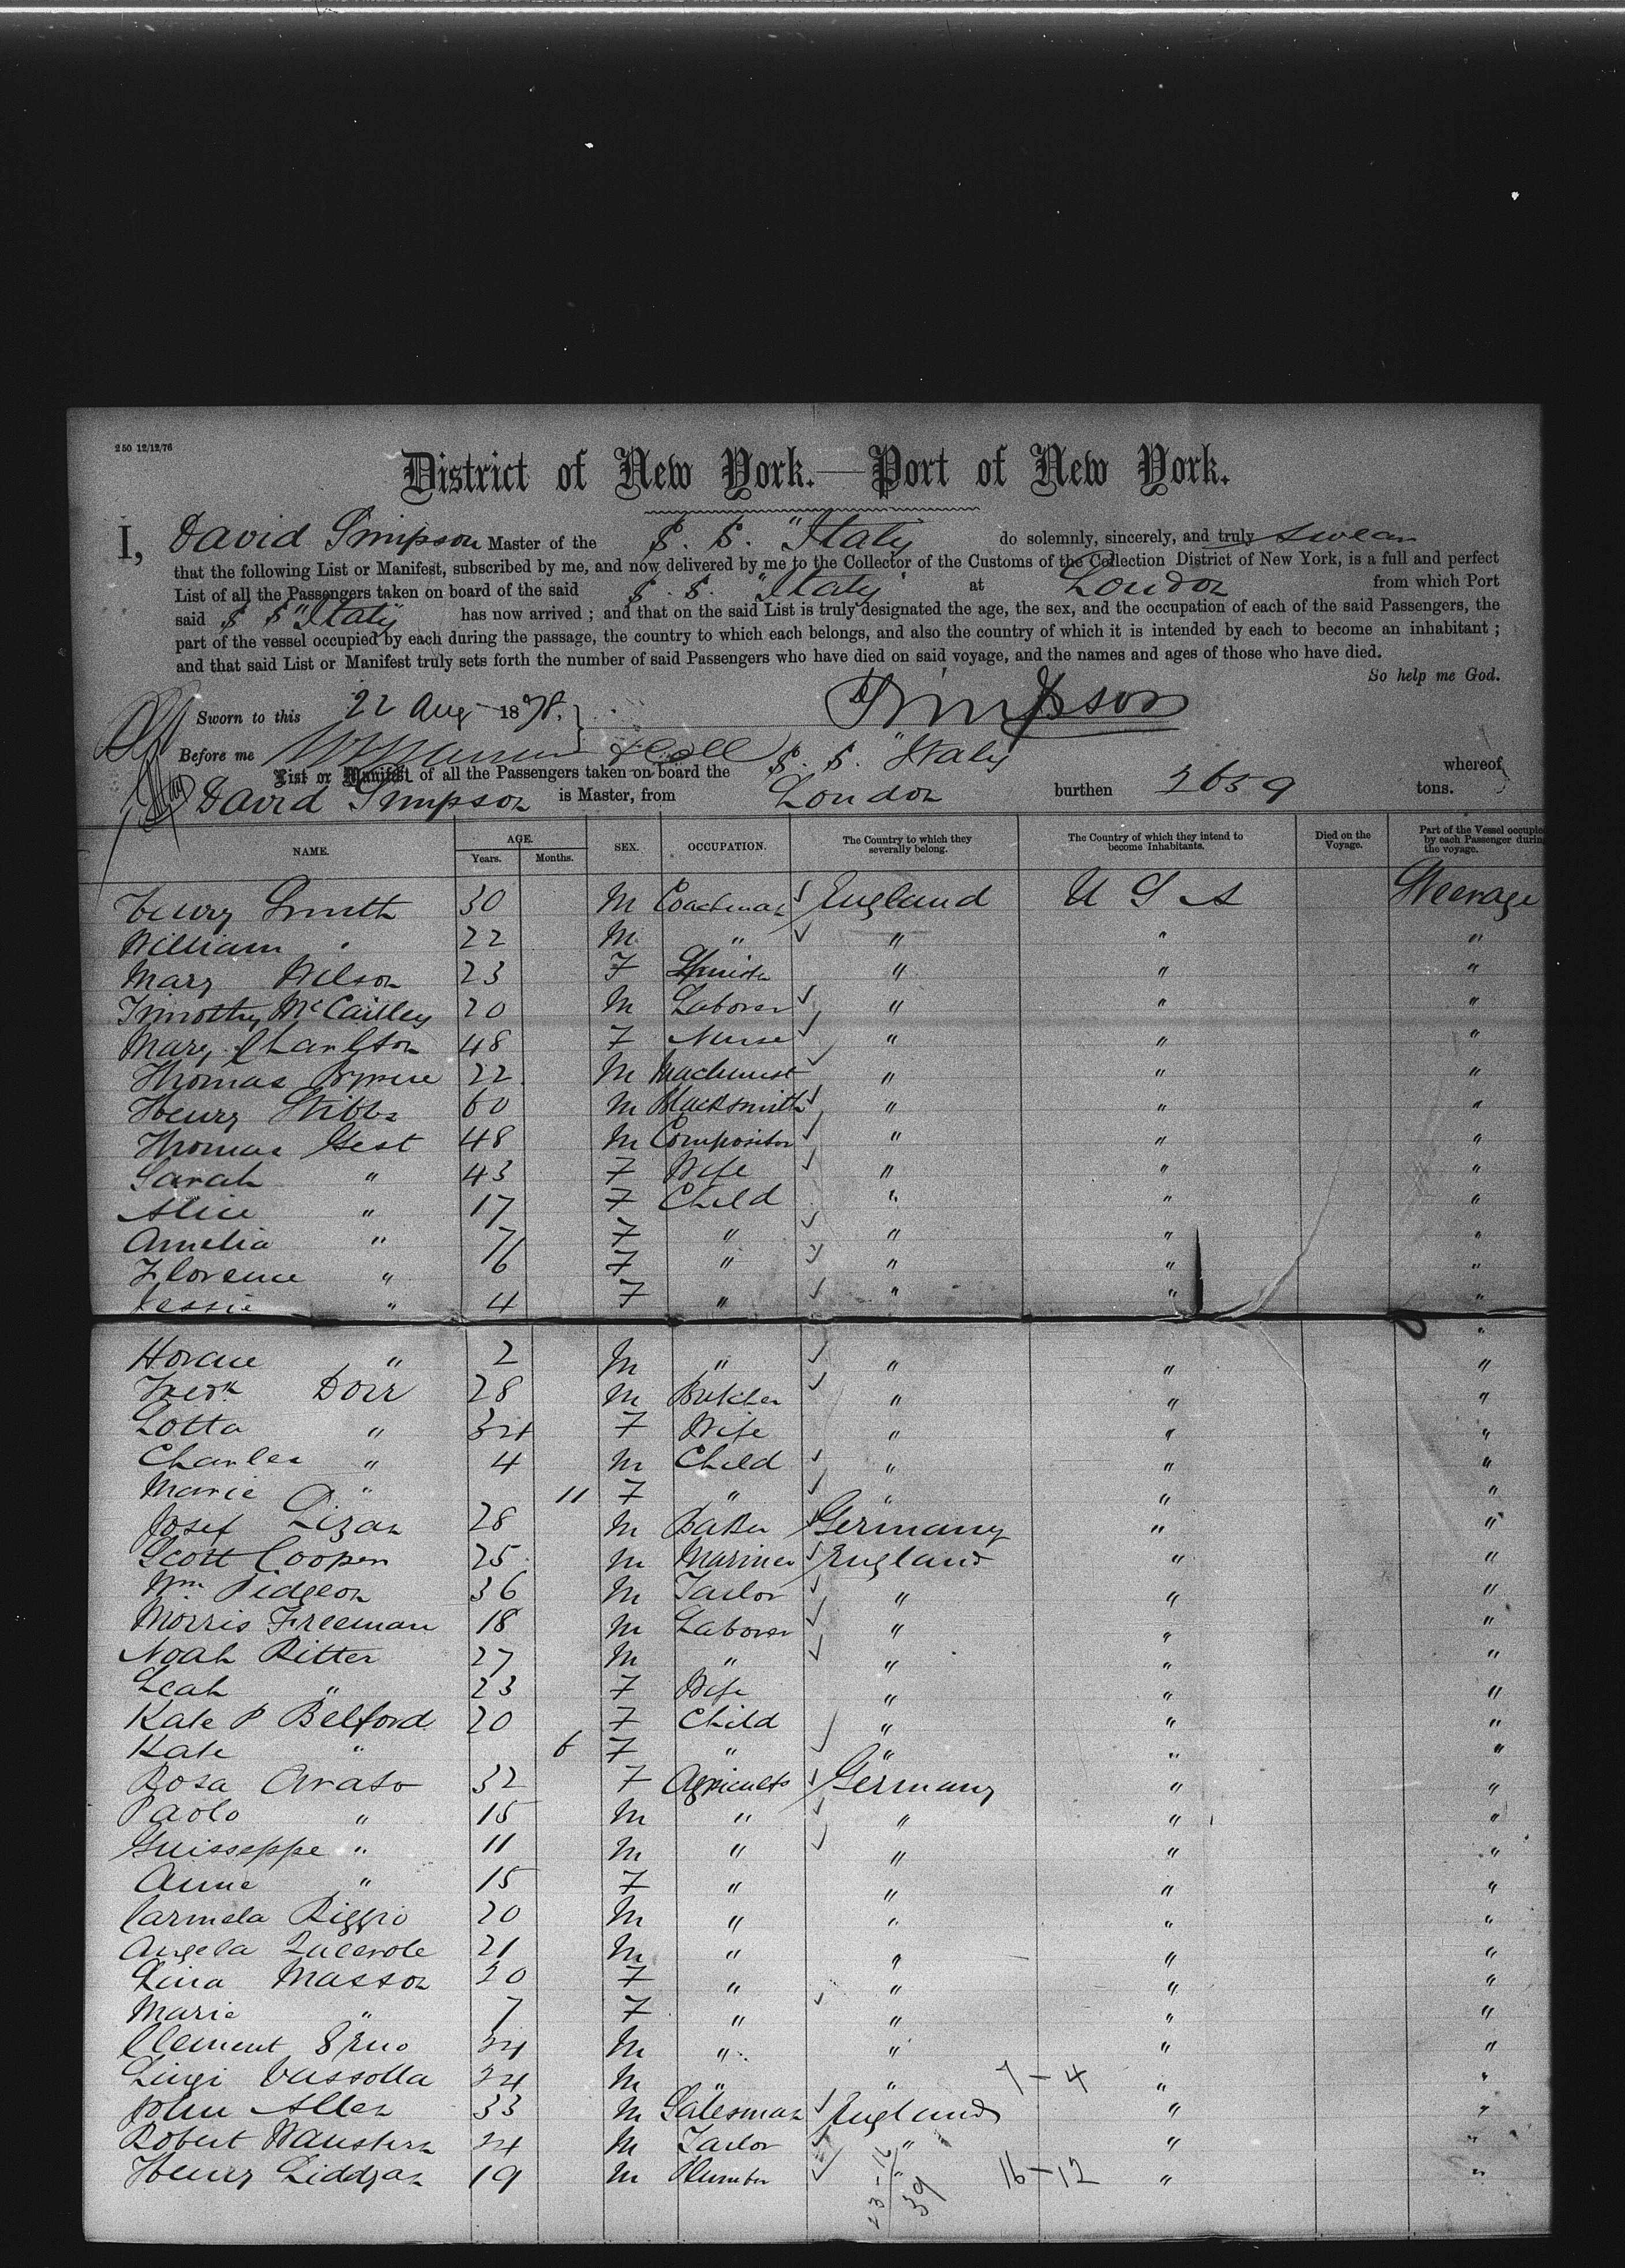 250 12/12/76
District of New York.—Port of New York.
I, David Simpson Master of the S. S. "Italy do solemnly, sincerely, and truly swear
that the following List or Manifest, subscribed by me, and now delivered by me to the Collector of the Customs of the Collection District of New York, is a full and perfect
List of all the Passengers taken on board of the said S. S. "Italy" at London from which Port
said S S "Italy" has now arrived ; and that on the said List is truly designated the age, the sex, and the occupation of each of the said Passengers, the
part of the vessel occupied by each during the passage, the country to which each belongs, and also the country of which it is intended by each to become an inhabitant ;
and that said List or Manifest truly sets forth the number of said Passengers who have died on said voyage, and the names and ages of those who have died.
So help me God.
Sworn to this 22 Aug 1878. Simpson
Before me
List or Manifest of all the Passengers taken on board the S. S. "Italy whereof
David Simpson is Master, from London burthen 2659 tons.
NAME. AGE. Years. Months. SEX. OCCUPATION. The Country to which they severally belong. The Country of which they intend to become Inhabitants. Died on the Voyage. Part of the Vessel occupied by each Passenger during the voyage.
Henry Smith 30 M Coachman England U S A Steerage
William " 22 M " " " "
Mary Wilson 23 F " " "
Timothy McCailley 20 M Laborer " " "
Mary Charlton 48 F Nurse " " "
Thomas Byrne 22 M Machinist " " "
Henry Stibbs 60 M Blacksmith " " "
Thomas Gest 48 M Compositor " " "
Sarah " 43 F Wife " " "
Alice " 17 F Child " " "
Amelia " 7 F " " " "
Florence " 6 F " " " "
Jessie " 4 F " " " "
Horace " 2 M " " " "
Fredk Dorr 28 M Butcher " " "
Lotta " 34 F Wife " " "
Charles " 4 M Child " " "
Marie " 11 F " " " "
Josef Lizan 28 M Baker Germany " "
Scott Cooper 25 M Mariner England " "
Wm Pidgeon 36 M Tailor " " "
Morris Freeman 18 M Laborer " " "
Noah Ritter 27 M " " " "
Leah " 23 F Wife " " "
Kate P Belford 20 F Child " " "
Kate " 6 F " " " "
Rosa Arato 32 F Agricults Germany " "
Paolo " 15 M " " " "
Guisseppe " 11 M " " " "
Anna " 15 F " " " "
Carmela Riggio 20 M " " " "
Angela 21 M " " " "
Lina Masson 20 F " " " "
Marie " 7 F " " " "
Clement 34 M " " " "
Luigi Vassolla 24 M " " 7-4 " "
John Allen 33 M Salesman England " "
Robert 24 M Tailor " " "
Henry Liddgan 19 M Plumber " 16-12 " "
23-16
39